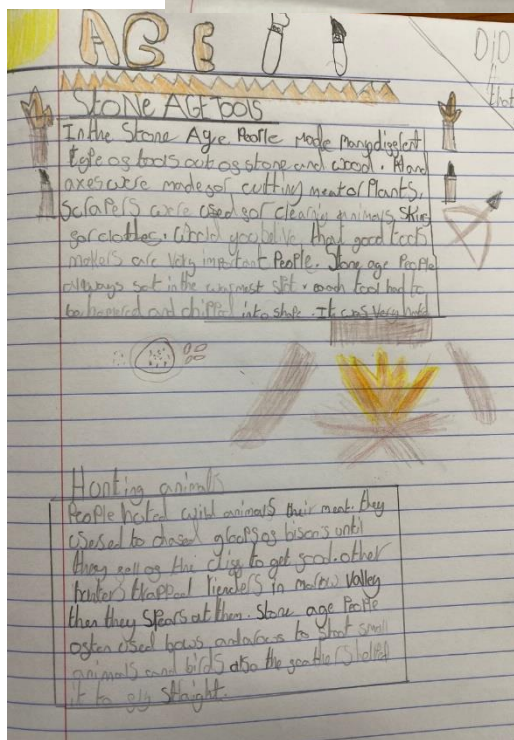 AGE
DiD
that
STONE AGE TOOLS
In the Stone Age People Made many different
type os tools out os stone and wood. Hand
axes were made sor cutting meat or Plants.
Scrapers were used sor cleanig animals skins
sor clothes. Would you belive that good tools
makers are very important People. Stone age People
allways sat in the warmest spot. each tool had to
be hamered and chipped into shape. It was Very hard
Hunting animals
People hoted wild animals their meat. they
used to chased gloops os bison's until
they sell os the clise to get good. other
hunters trapped rienders in marow valley
then they spears at them. Stone age People
osten used bows and arows to shoot small
animals and birds also the seathers helped
it to sly straight.